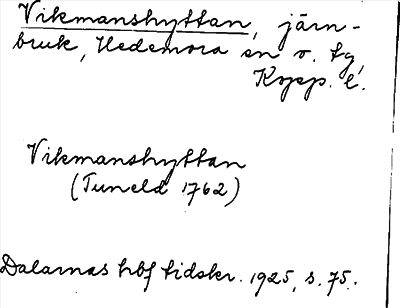 Vikmanshyttan, järn-
bruk, Hedemora sn o. tg,
Kopp. l.
Vikmanshyttan
(Tuneld 1762)
Dalarnas hbf tidskr. 1925, s. 75.